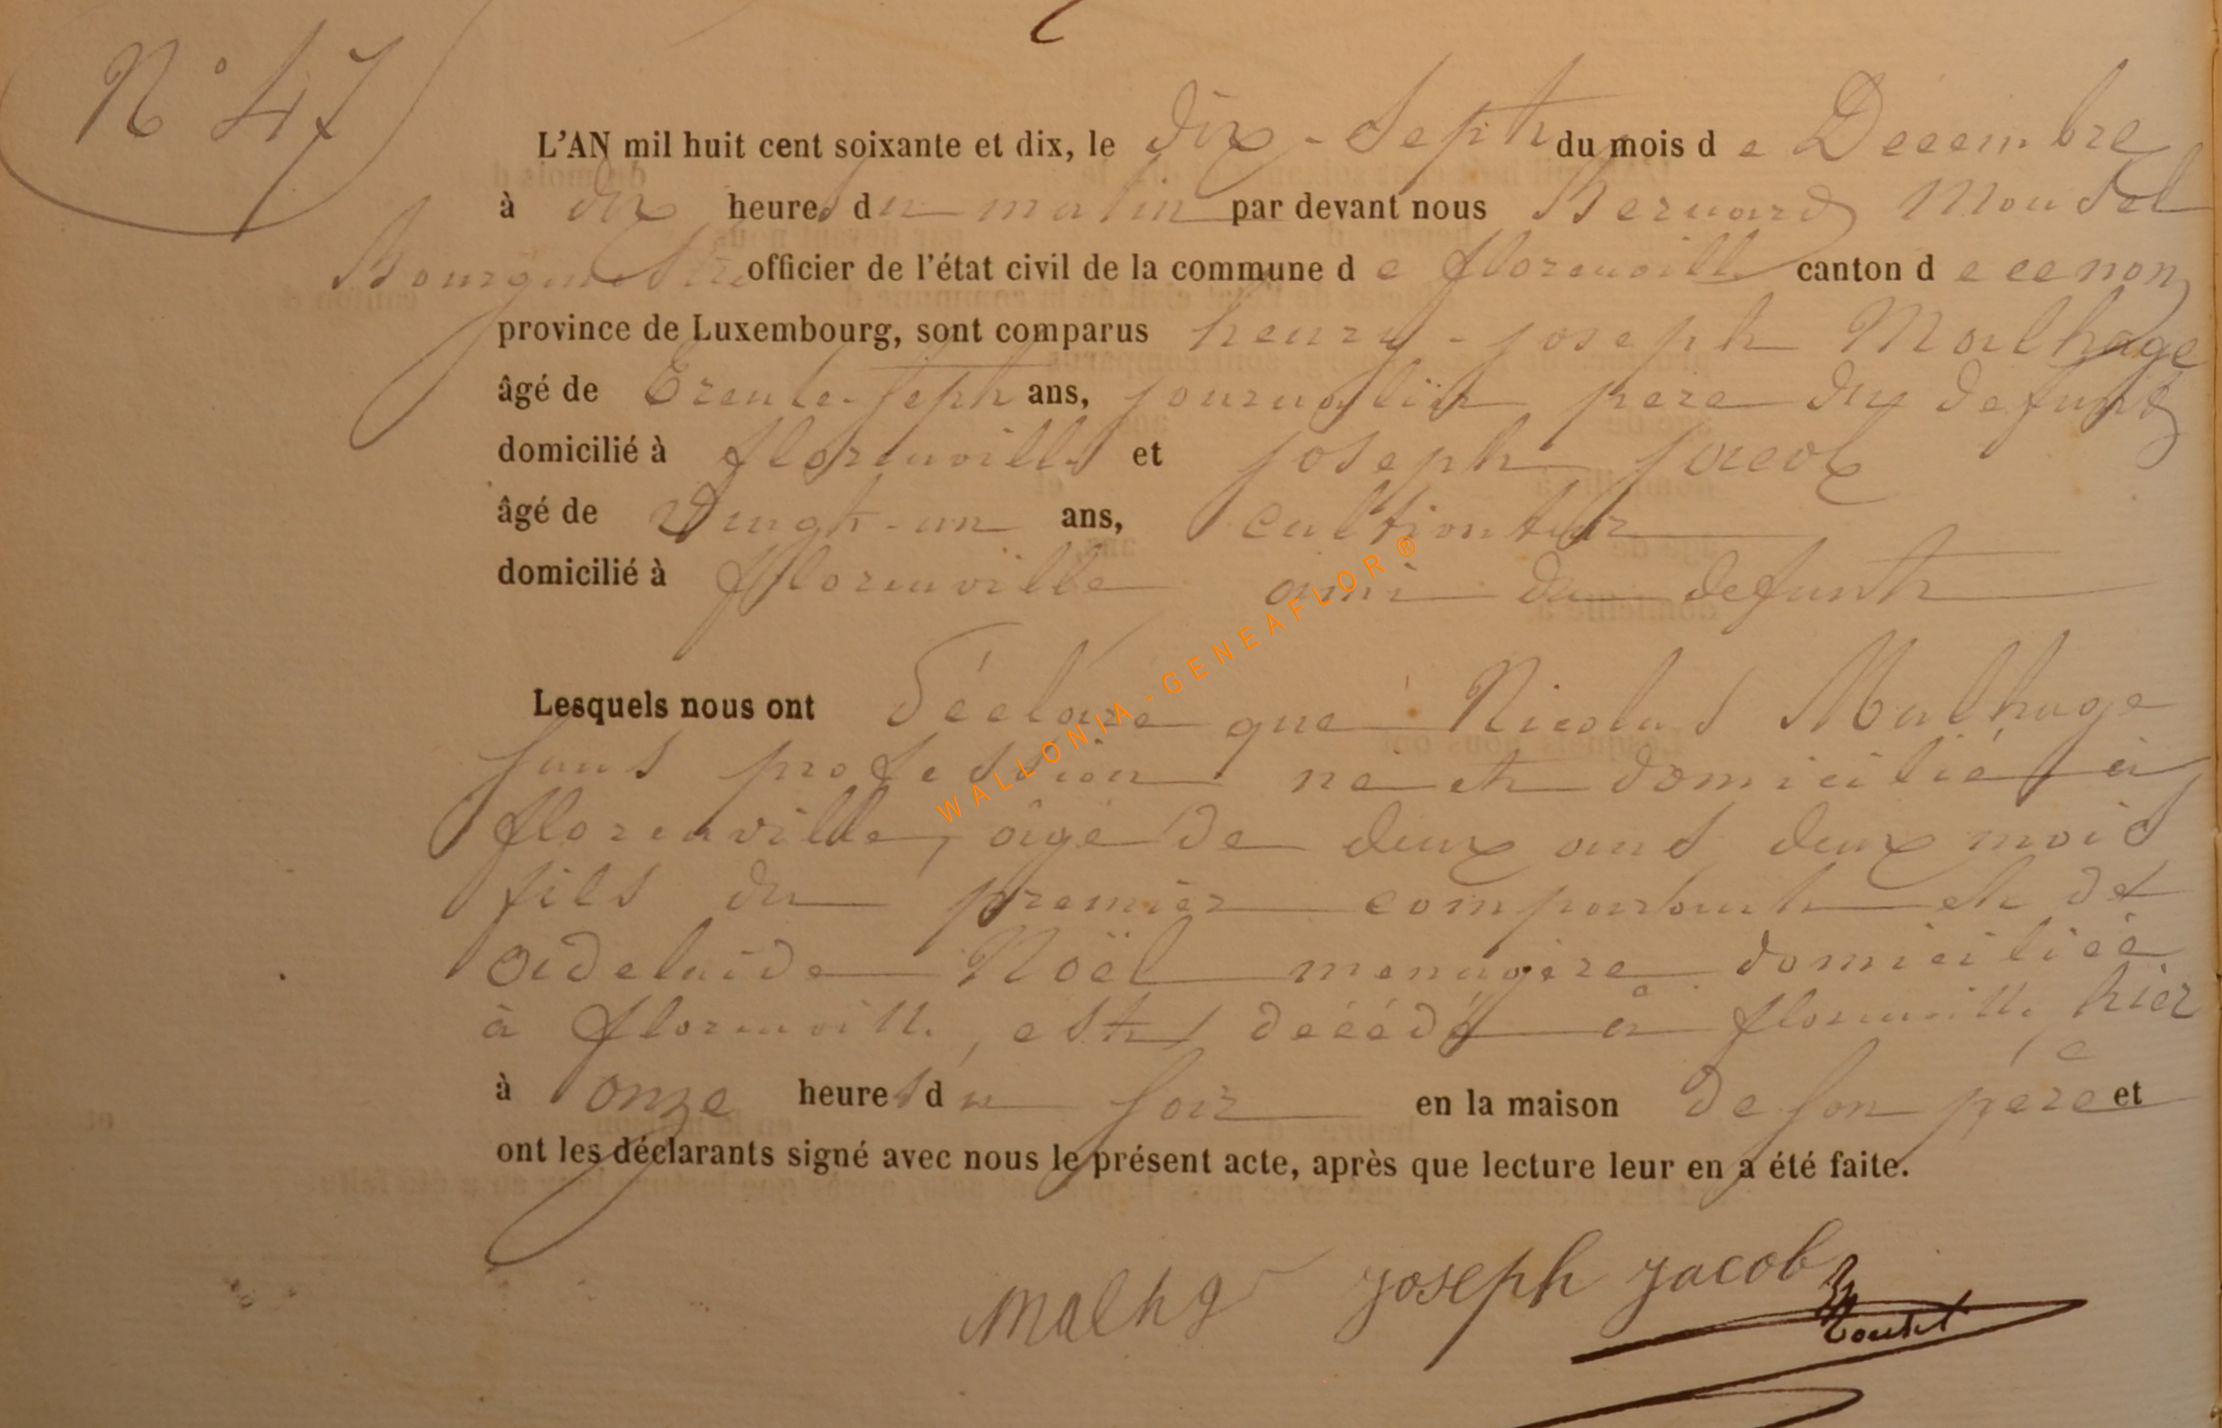 N° 47
L'AN mil huit cent soixante et dix, le dix-Sept du mois de Decembre
à dix heures du matin par devant nous Bernard Mousel
Bourgmestre officier de l'état civil de la commune de florenville canton de ce nom
province de Luxembourg, sont comparus henry-joseph Malhage
âgé de Trente-sept ans, journalier pere du defunt
domicilié à florenville et joseph jacob
âgé de Vingt-un ans, cultivateur
domicilié à florenville ami du defunt
Lesquels nous ont Déclaré que Nicolas Malhage
sans profession né et domicilié à
florenville, âgé de deux ans deux mois
fils du premier comparant et de
adelaide Noël menagère domiciliée
à florenville, est décédé à florenville hier
à onze heures du soir en la maison de son père et
ont les déclarants signé avec nous le présent acte, après que lecture leur en a été faite.
Malhg joseph jacob
WALLONIA-GENEAFLOR ®